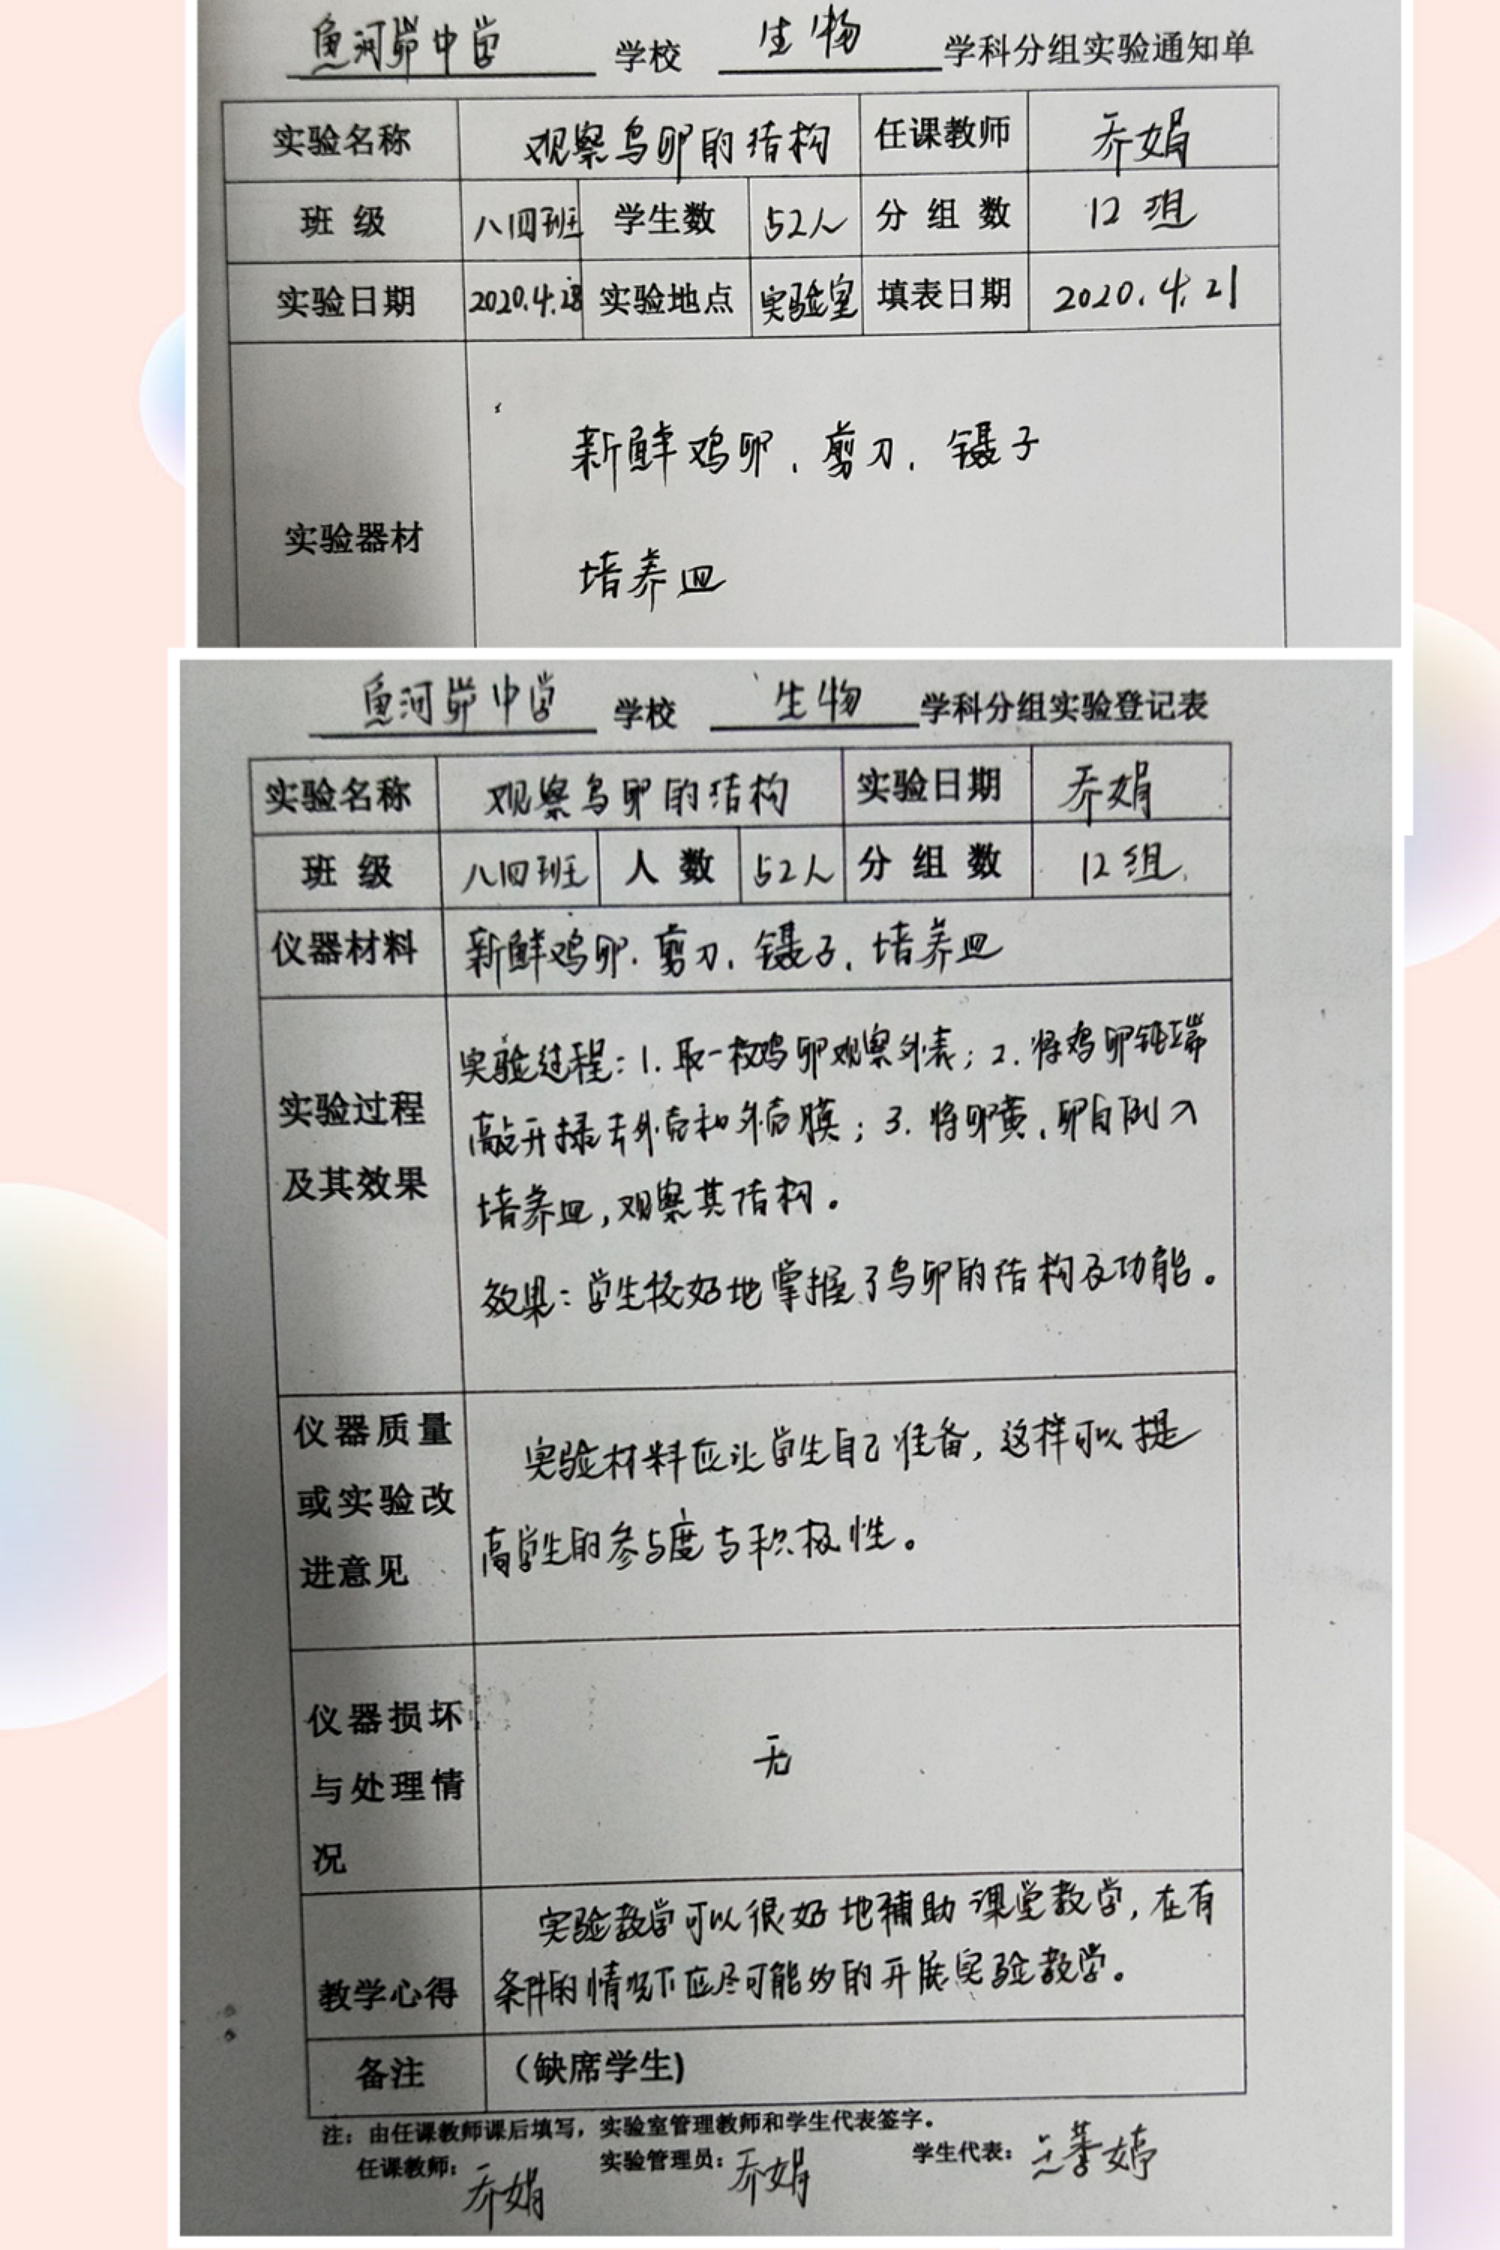 鱼河峁中学 学校 生物 学科分组实验通知单
实验名称 观察鸟卵的结构 任课教师 乔娟
班 级 八四班 学生数 52人 分 组 数 12组
实验日期 2020.4.28 实验地点 实验室 填表日期 2020.4.21
实验器材
新鲜鸡卵、剪刀、镊子
培养皿
鱼河峁中学 学校 生物 学科分组实验登记表
实验名称 观察鸟卵的结构 实验日期 乔娟
班 级 八四班 人 数 52人 分 组 数 12组
仪器材料 新鲜鸡卵、剪刀、镊子、培养皿
实验过程
及其效果
实验过程:1.取一枚鸡卵观察外表;2.将鸡卵钝端
敲开揉去外壳和外壳膜;3.将卵黄、卵白倒入
培养皿,观察其结构。
效果:学生较好地掌握了鸟卵的结构及功能。
仪器质量
或实验改
进意见
实验材料应让学生自己准备,这样可以提
高学生的参与度与积极性。
仪器损坏
与处理情
况
无
教学心得
实验教学可以很好地辅助课堂教学,在有
条件的情况下应尽可能的开展实验教学。
备注 (缺席学生)
注:由任课教师课后填写,实验室管理教师和学生代表签字。
任课教师:乔娟 实验管理员:乔娟 学生代表: